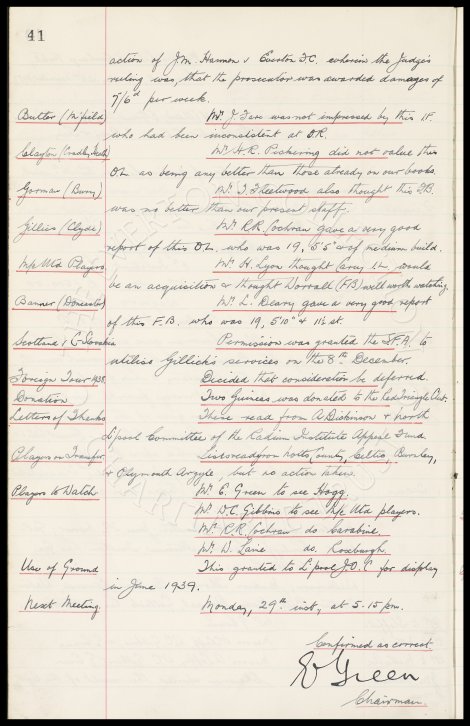 41
action of Jm. Harmon v Everton F.C. wherein the Judge's
ruling was, that the prosecutor was awarded damages of
7/6d per week.
Butler (M'field) Mr. J. Fare was not impressed by this I.F.
who had been inconsistent at O.R.
Clayton (Cradley Heath) Mr. H.R. Pickering did not value this
O.L. as being any better than those already on our books.
Gorman (Bury) Mr. T. Fleetwood also thought this F.B.
was no better than our present staff.
Gillies (Clyde) Mr. R.R. Cochran gave a very good
report of this O.L. who was 19, 5'5" & of medium build.
Npt Utd Players Mr. H. Lyon thought Carey I.L. would
be an acquisition & thought Worrall (F.B.) well worth watching.
Banner (Doncaster) Mr. L. Deary gave a very good report
of this F.B. who was 19, 5'10" & 11½ st.
Scotland v C-Slovakia Permission was granted the S.F.A. to
utilise Gillick's services on the 8th December.
Foreign Tour 1938. Decided that consideration be deferred.
Donation Two Guineas was donated to the Red Triangle Club.
Letters of Thanks These read from A. Dickinson & north
L'pool Committee of the Radium Institute Appeal Fund.
Players on Transfer Lists read from Notts County, Celtic, Burnley,
& Plymouth Argyle, but no action taken.
Players to Watch Mr. E. Green to see Hogg.
Mr. D.C. Gibbins to see Npt Utd players.
Mr. R.R. Cochran do Carabine.
Mr. W. Lane do. Roxburgh.
Use of Ground This granted to L'pool J.O.C for display
in June 1939.
Next Meeting. Monday, 29th inst, at 5.15 pm.
Confirmed as correct
E Green
Chairman.